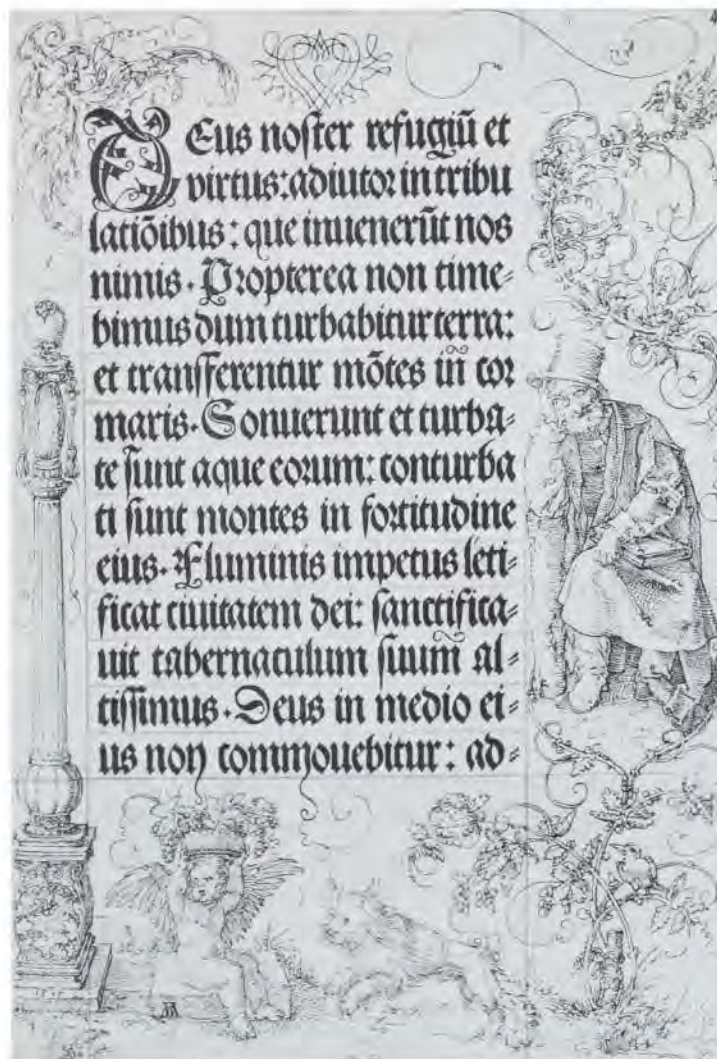 4
Deus noster refugiū et
virtus: adiutor in tribu
latiōibus: que inuenerūt nos
nimis. Propterea non time⸗
bimus dum turbabitur terra:
et transferentur mōtes in cor
maris. Sonuerunt et turba⸗
te sunt aque eorum: conturba
ti sunt montes in fortitudine
eius. Fluminis impetus leti⸗
ficat ciuitatem dei: sanctifica⸗
uit tabernaculum suum al⸗
tissimus. Deus in medio ei⸗
us non commouebitur: ad⸗
AD